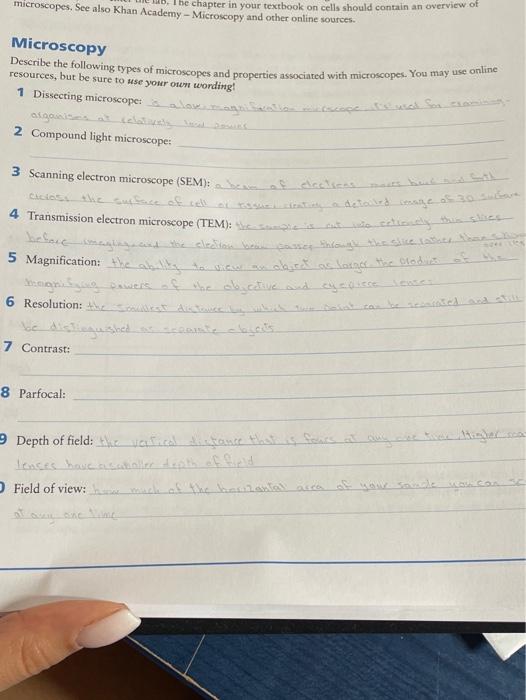 microscopes. See also Khan Academy – Microscopy and other online sources.
lab. The chapter in your textbook on cells should contain an overview of
Microscopy
Describe the following types of microscopes and properties associated with microscopes. You may use online
resources, but be sure to use your own wording!
1 Dissecting microscope: is a low magnification microscope. It's used for examining
organisms at relatively low power
2 Compound light microscope:
3 Scanning electron microscope (SEM): a beam of electrons moves back and forth
across the surface of cell or tissue, creating a detailed image of 3D surface
4 Transmission electron microscope (TEM): the sample is cut into extremely thin slices
before imaging, and the electron beam passes through the slice rather than
over its
5 Magnification: the ability to view an object as larger. the product of the
magnifying powers of the objective and eyepiece lenses
6 Resolution: the smallest distance by which two point can be separated and still
be distinguished as separate objects
7 Contrast:
8 Parfocal:
9 Depth of field: the vertical distance that is focus at any one time. Higher
lenses have a smaller depth of field
Field of view: how much of the horizantal area of your sample you can
at any one time